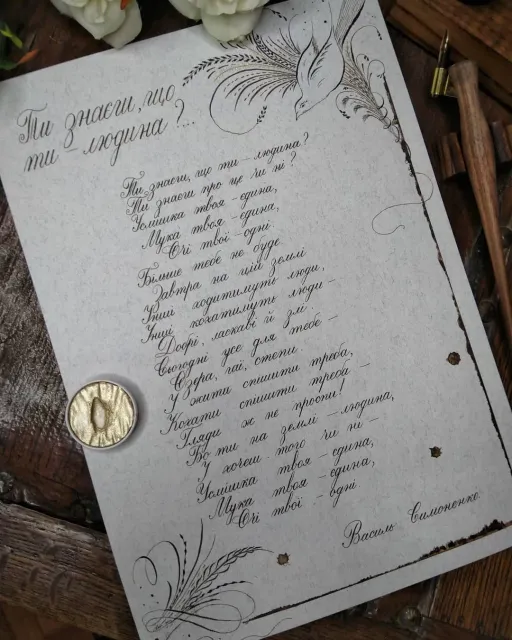 Ти знаєш, що
ти – людина?..
Ти знаєш, що ти – людина?
Ти знаєш про це чи ні?
Усмішка твоя – єдина,
Мука твоя – єдина,
Очі твої – одні.
Більше тебе не буде
Завтра на цій землі
Інші ходитимуть люди,
Інші кохатимуть люди –
Добрі, ласкаві й злі.
Сьогодні усе для тебе –
Озера, гаї, степи.
У жити спішити треба,
Кохати спішити треба –
Гляди ж не проспи!
Бо ти на землі – людина,
У хочеш того чи ні –
Усмішка твоя – єдина,
Мука твоя – єдина,
Очі твої – одні.
Василь Симоненко.